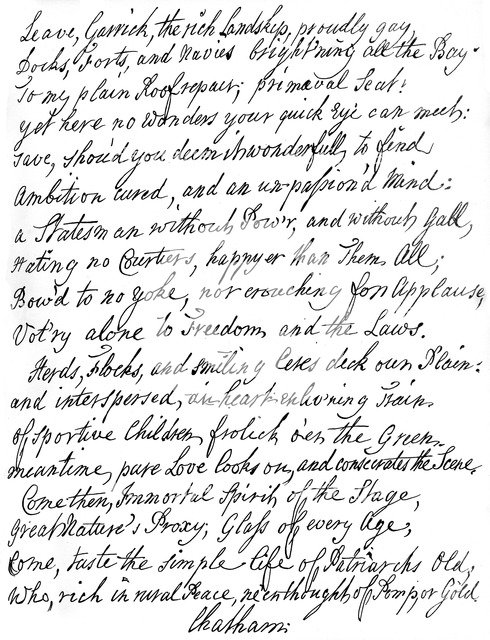 Leave, Garrick, the rich Landskip, proudly gay,
Docks, Forts, and Navies bright'ning all the Bay.
To my plain Roof repair; primæval Seat!
yet here no wonders your quick Eye can meet:
save, shou'd you deem it wonderfull, to find
Ambition cured, and an un-passion'd Mind:
a Statesman without Pow'r, and without Gall,
Hating no Courtiers, happyer than Them All;
Bow'd to no yoke, nor crouching for Applause,
Vot'ry alone to Freedom, and the Laws.
Herds, Flocks, and smiling Ceres deck our Plain:
and interspersed, an heart-enliv'ning Train
of sportive Children frolick o'er the Green.
meantime, pure Love looks on, and consecrates the Scene.
Come then, Immortal Spirit of the Stage,
great Nature's Proxy, Glass of every Age,
Come, taste the simple life of Patriarchs Old,
Who, rich in rural Peace, ne'er thought of Pomp, or Gold.
Chatham.